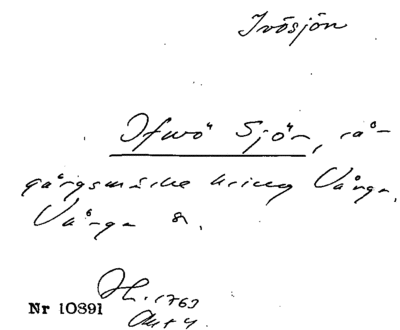 Ivösjön
Ifwö Sjön, rå-
gångsmärke kring Vånga,
Vånga s.
H. 1763
Akt 4.
Nr 10891